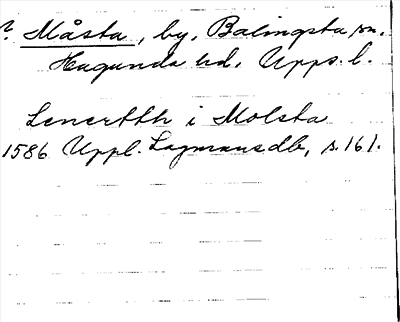 ? Måsta, by, Balingsta sn.
Hagunda hd. Upps. l.
Lenertth i Molsta
1586 Uppl. Lagmansdb, s. 161.